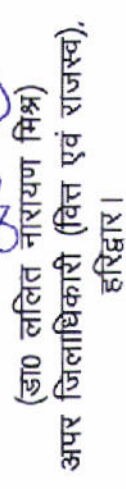 (डा0 ललित नारायण मिश्र)
अपर जिलाधिकारी (वित्त एवं राजस्व),
हरिद्वार।